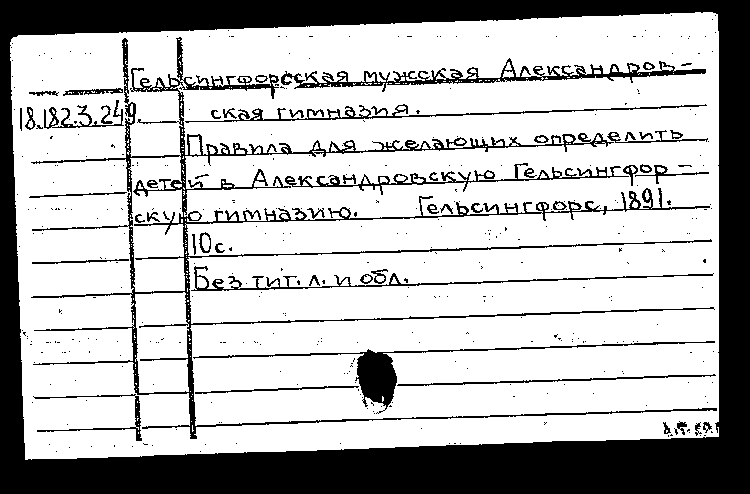 Гельсингфорсская мужская Александров-
18.182.3.249. ская гимназия.
Правила для желающих определить
детей в Александровскую Гельсингфор-
скую гимназию. Гельсингфорс, 1891.
10с.
Без тит. л. и обл.